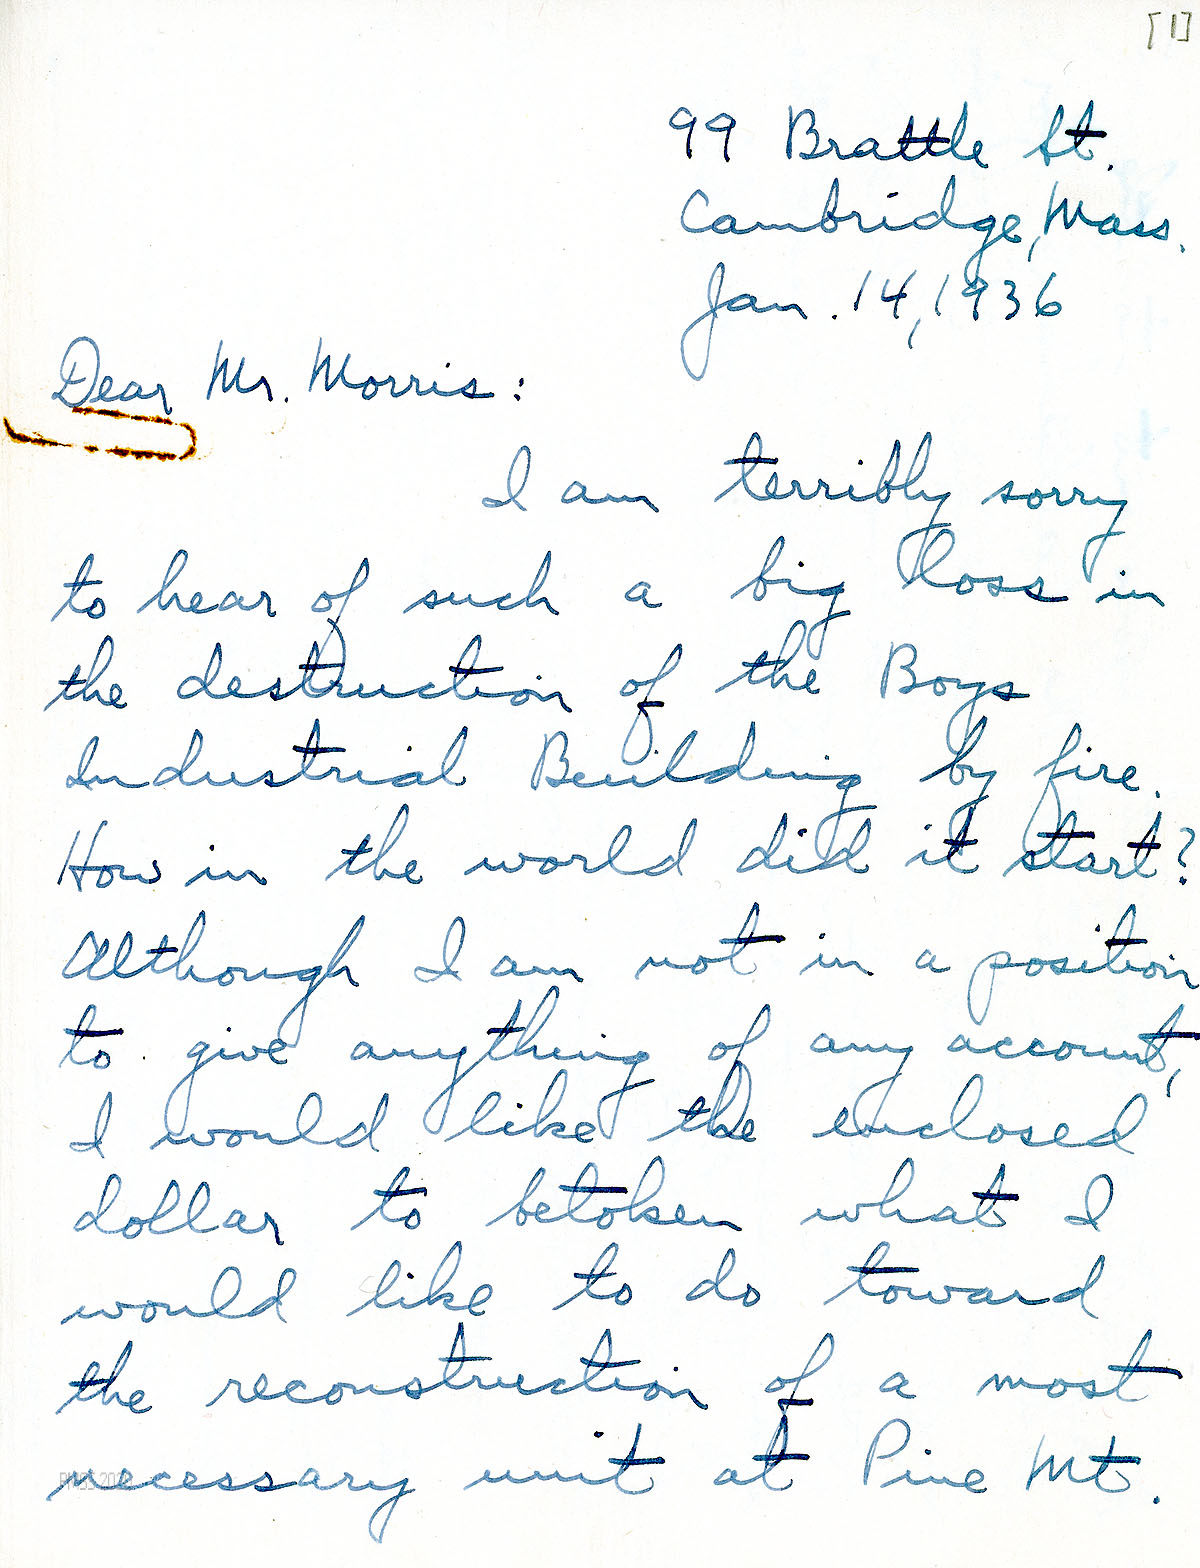 [1]
99 Brattle St.
Cambridge, Mass.
Jan. 14, 1936
Dear Mr. Morris:
I am terribly sorry
to hear of such a big loss in
the destruction of the Boys
Industrial Building by fire.
How in the world did it start?
Although I am not in a position
to give anything of any account,
I would like the enclosed
dollar to betoken what I
would like to do toward
the reconstruction of a most
necessary unit at Pine Mt.